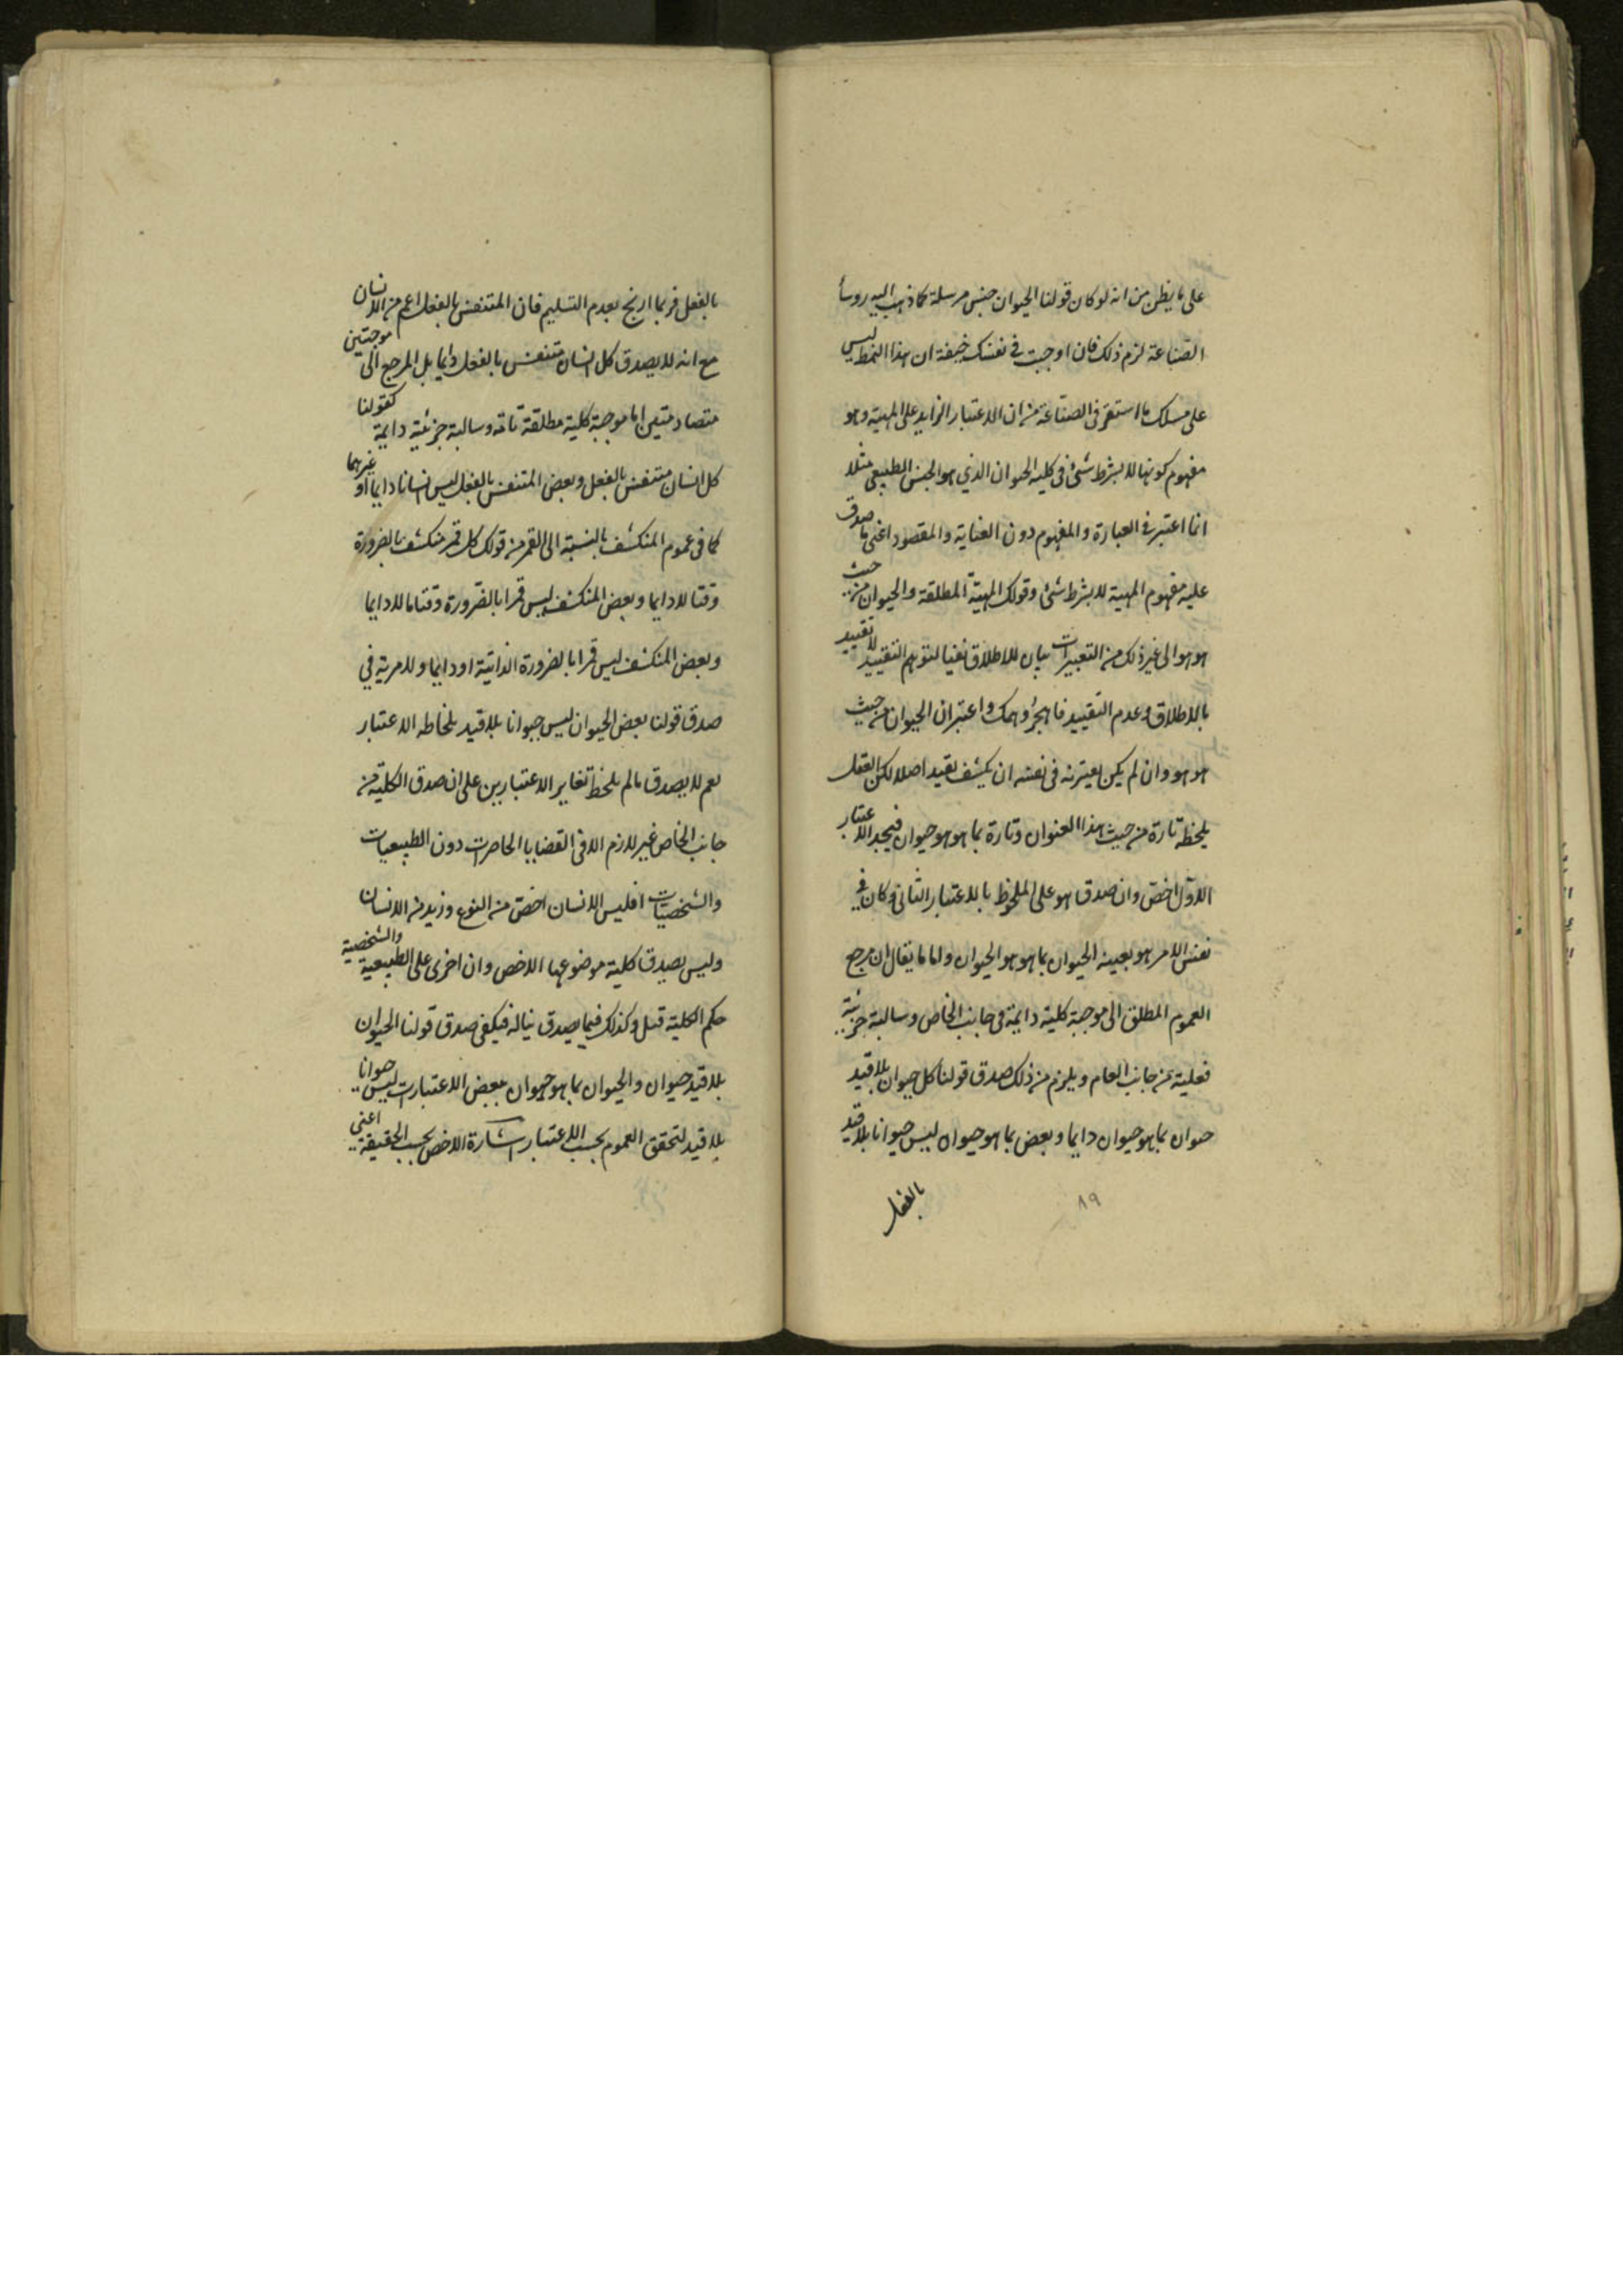 على ما يظن من انه لو كان قولنا الحيوان جنس مرسلة كما ذهب اليه روسأ
الصناعة لزم ذلك فان اوجبت في نفسك خيفة ان هذا النمط ليس
على مسلك ما استقر في الصناعة من ان الاعتبار الزايد على المهية وهو
مفهوم كونها لا بشرط شئ في كلية الحيوان الذي هو الجنس الطبيعي مثلا
انما اعتبر في العبارة والمفهوم دون العناية والمقصود اعني ما صدق
عليه مفهوم المهية لا بشرط شئ وقولك المهية المطلقة والحيوان من حيث
هو هو الى غير ذلك من التعبيرات بيان للاطلاق نفيا لتوهم التقييد لا تقييد
بالاطلاق وعدم التقييد فاهجر وهمك واعتبر ان الحيوان من حيث
هو هو وان لم يكن يعتريه في نفسه ان يكشف بقيد اصلا لكن العقل
يلحظه تارة من حيث هذا العنوان وتارة بما هو هو حيوان فيجد الاعتبار
الاول اخص وان صدق هو على الملحوظ بالاعتبار الثاني وكان في
نفس الامر هو بعينه الحيوان بما هو هو الحيوان واما ما يقال ان مرجع
العموم المطلق الى موجبة كلية دايمة في جانب الخاص وسالبة جزئية
فعلية من جانب العام ويلزم من ذلك صدق قولنا كل حيوان بلا قيد
حيوان بما هو حيوان دايما وبعض بما هو حيوان ليس حيوانا بلا قيد
بالفعل
٨٩
بالفعل فربما ازيح بعدم التسليم فان المتنفس بالفعل اعم من الانسان
مع انه لا يصدق كل انسان متنفس بالفعل دايما بل المرجع الى موجبتين
متصادمتين اما موجبة كلية مطلقة تامة وسالبة جزئية دايمة كقولنا
كل انسان متنفس بالفعل وبعض المتنفس بالفعل ليس انسانا دايما او غيرهما
كما في عموم المنكشف بالنسبة الى القمر من قولك كل قمر منكشف بالضرورة
وقتا لا دايما وبعض المنكشف ليس قمرا بالضرورة وقتا ما لا دايما
وبعض المنكشف ليس قمرا بالضرورة الذاتية او دايما ولا مرية في
صدق قولنا بعض الحيوان ليس حيوانا بلا قيد بلحاظه الاعتبار
نعم لا يصدق ما لم يلحظ تغاير الاعتبارين على ان صدق الكلية من
جانب الخاص غير لازم الا في القضايا الحاصرات دون الطبيعيات
والشخصيات افليس الانسان اخص من النوع وزيد من الانسان
وليس يصدق كلية موضوعها الاخص وان اخرى على الطبيعية والشخصية
حكم الكلية قبل وكذلك فيما يصدق نياله فيكفي صدق قولنا الحيوان
بلا قيد حيوان والحيوان بما هو حيوان ببعض الاعتبارات ليس حيوانا
بلا قيد لتحقق العموم بحسب الاعتبار اشارة الاخص بحسب الحقيقة اعني